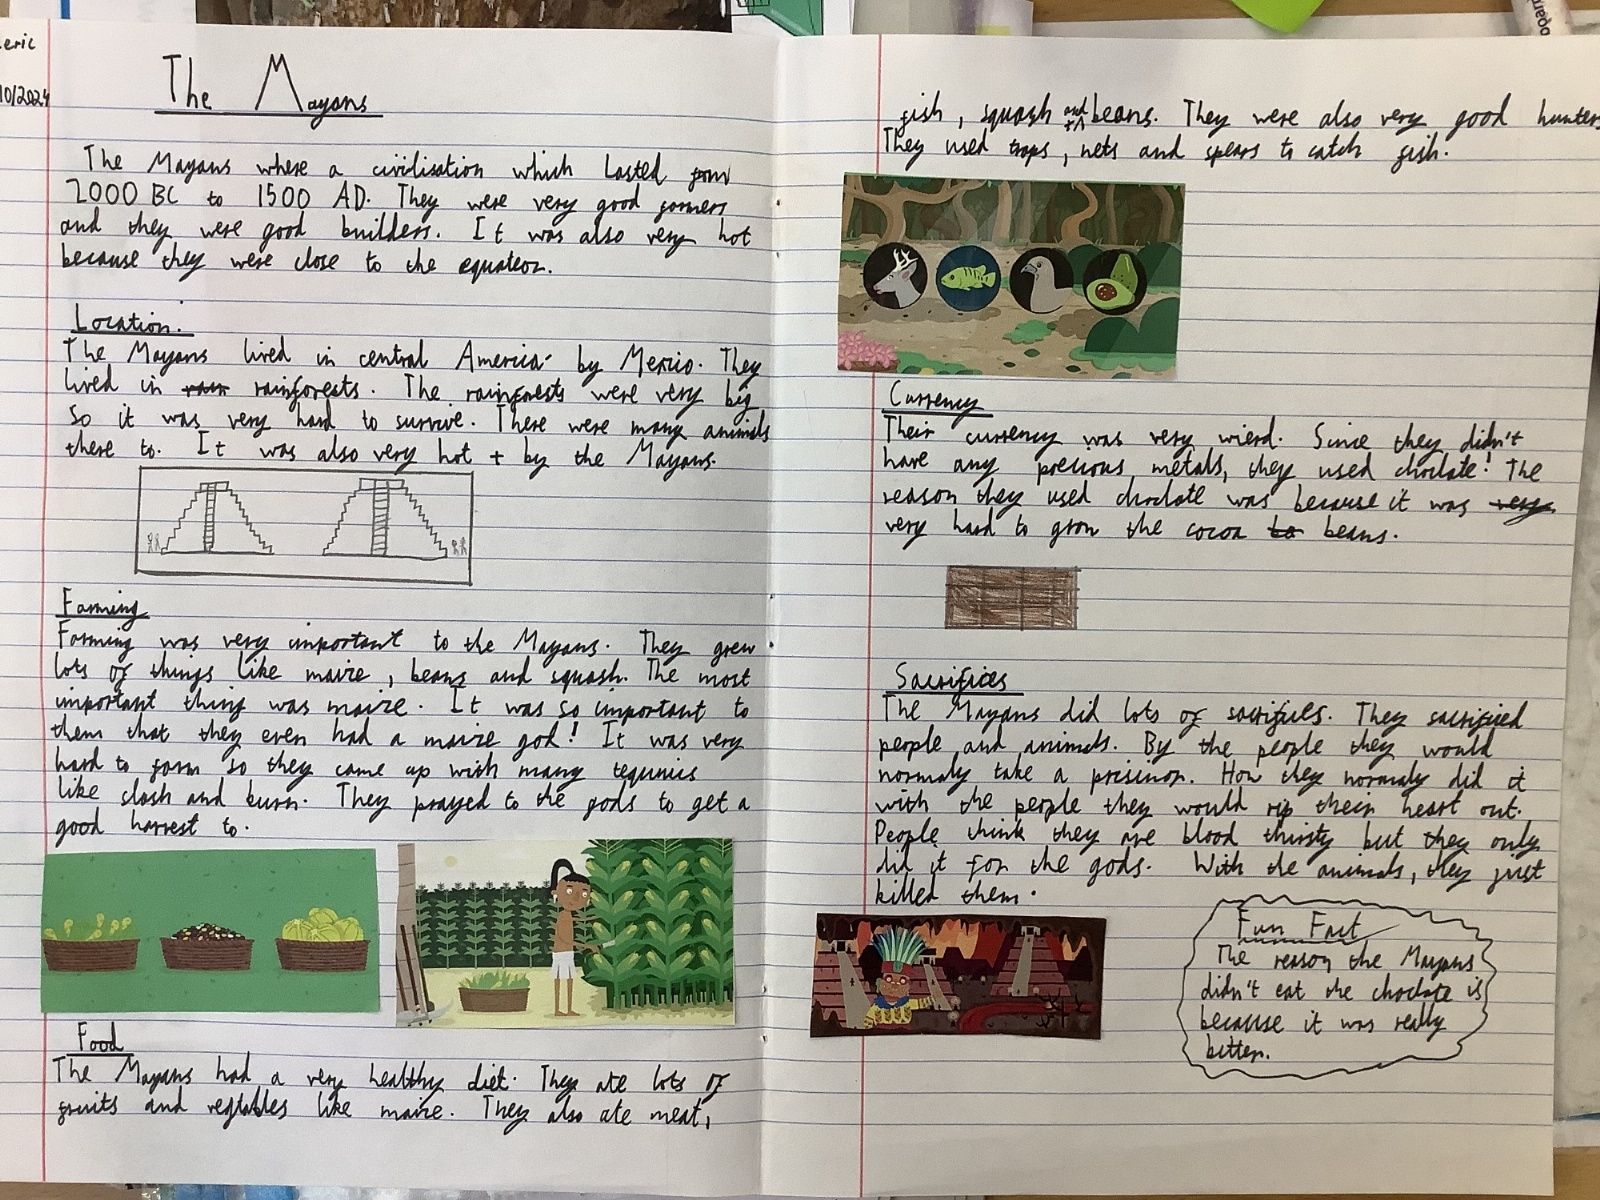 eric
10/2024
The Mayans
The Mayans where a civilisation which lasted from
2000 BC to 1500 AD. They were very good farmers
and they were good builders. It was also very hot
because they were close to the equator.
Location.
The Mayans lived in central America by Mexico. They
lived in rain rainforests. The rainforests were very big
so it was very hard to survive. There were many animals
there to. It was also very hot + by the Mayans.
Farming
Farming was very important to the Mayans. They grew
lots of things like maize, beans and squash. The most
important thing was maize. It was so important to
them that they even had a maize god! It was very
hard to farm so they came up with many tequnics
like slash and burn. They prayed to the gods to get a
good harvest to.
Food
The Mayans had a very healthy diet. They ate lots of
fruits and vegtables like maize. They also ate meat,
fish, squash and beans. They were also very good hunters
They used traps, nets and spears to catch fish.
Currency
Their currency was very wierd. Since they didn't
have any precious metals, they used choclate! The
reason they used choclate was because it was very
very hard to grow the cocoa to beans.
Sacrifices
The Mayans did lots of sacrifices. They sacrificed
people and animals. By the people they would
normaly take a prisinor. How they normaly did it
with the people they would rip their heart out.
People think they are blood thirsty but they only
did it for the gods. With the animals, they just
killed them.
Fun Fact
The reason the Mayans
didn't eat the choclate is
because it was really
bitter.